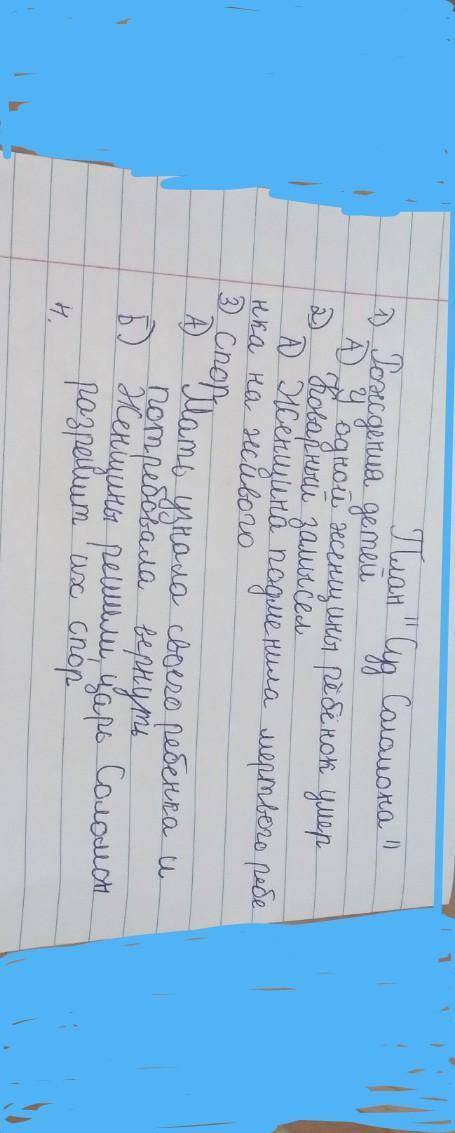 План "Суд Соломона"
1) Рождения детей
А) У одной женщины ребёнок умер
2) Коварный замысел
А) Женщина подменила мертвого ребе
нка на живого
3) Спор
А) Мать узнала своего ребенка и
потребовала вернуть
Б) Женщины решили, царь Соломон
разрешит их спор
4.